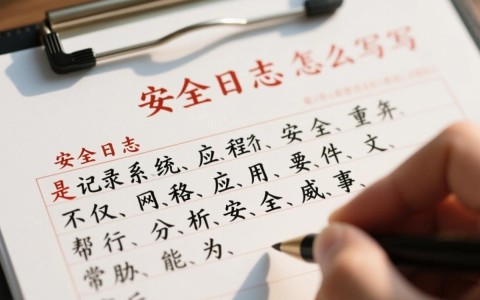 安全日志 怎么写写
安全日志
是记录系统、应程、安全、重年、
不仅、网、格、应、用、要、件、文、
帮、行、分、析、安、全、威、事、
常胁、能、为、